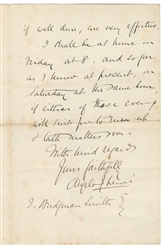 if well done, are very effective.
I shall be at home on
Friday at 8. and so far
as I know at present, on
Saturday at the same time,
if either of those even
will suit you to
talk matters over.
With kind regards
Yours faithfully
J. Bridgman Smith Esq